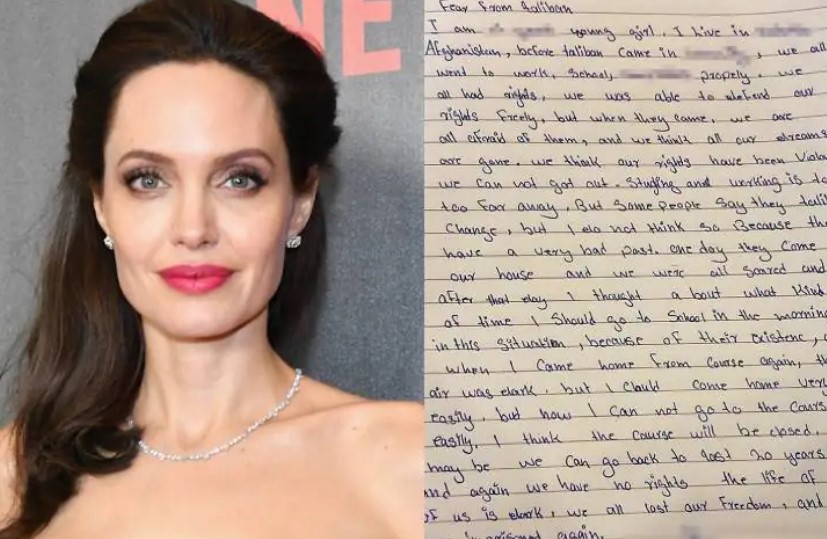 NE
Fear From taliban
I am young girl. I live in
Afghanistan, before taliban came in , we all
went to work, School, propely. we
all had rights, we was able to defend our
rights Freely, but when they came, we are
all afraid of them, and we think all our dreams
are gone. we think our rights have been Viola
we can not got out. Studing and working is to
too far away. But some people say they tali
Change, but I do not think so Because the
have a very bad past. one day they come
our house and we were all scared and
after that day I thought a bout what kind
of time I should go to School in the morning
in this situation, because of their existenc,
when I came home from course again, th
air was dark, but I clould come home very
easily, but now I can not go to the cours
easily, I think the course will be closed.
may be we can go back to last 20 years
and again we have no rights the life of
of us is dark, we all lost our freedom, and
again.